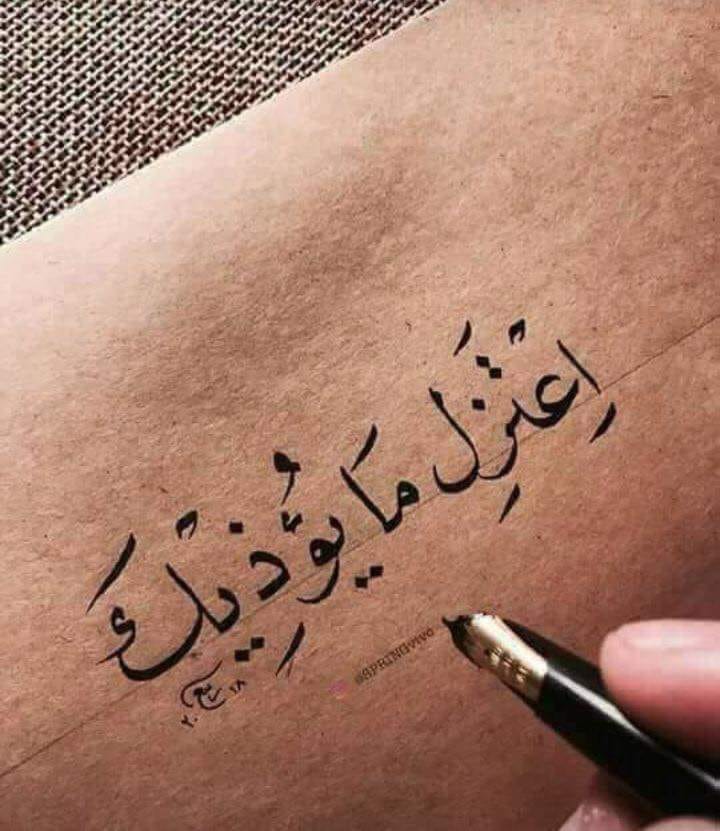 اِعْتَزِل مَا يُؤذِيْك
ربيع
٢٠١٨
@SPRINGVIVO